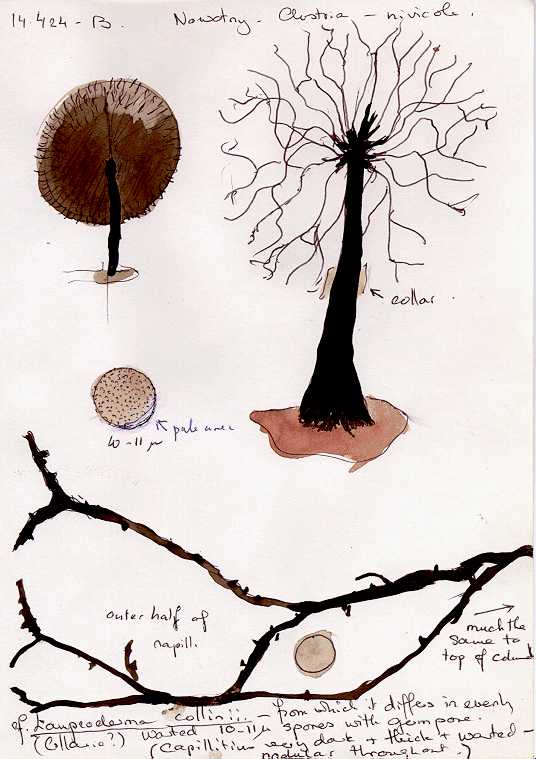 14.424-B. Nowotny - Austria - nivicole.
collar.
pale area
10-11 µ
outer half of
capill.
much the
same to
top of colum
cf. Lamproderma collinii - from which it differs in evenly
(Collario?) warted 10-11µ spores with germpore.
(Capillitium very dark + thick + warted -
nodular throughout.)